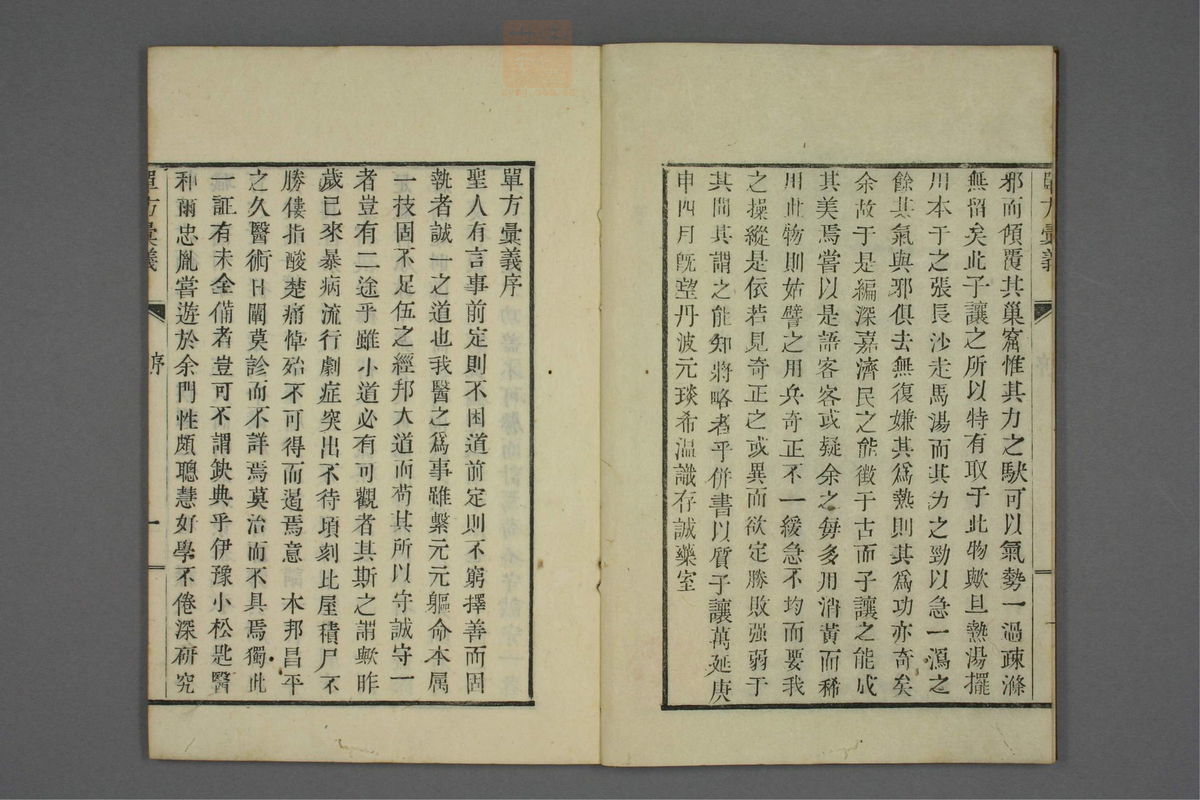 邪而傾覆其巢窟惟其力之駃可以氣勢一過疎滌
無留矣此子讓之所以特有取于此物歟且熱湯擺
用本于之張長沙走馬湯而其力之勁以急一瀉之
餘其氣與邪俱去無復嫌其爲熱則其爲功亦奇矣
余故于是編深嘉濟民之能徵于古而子讓之能成
其美焉嘗以是語客客或疑余之每多用消黃而稀
用此物則姑譬之用兵奇正不一緩急不均而要我
之操縱是依若見奇正之或異而欲定勝敗强弱于
其間其謂之能知將略者乎併書以質子讓萬延庚
申四月旣望丹波元琰希溫識存誠藥室
單方彙義
序
單方彙義序
聖人有言事前定則不困道前定則不窮擇善而固
執者誠一之道也我醫之爲事雖繫元元軀命本属
一技固不足伍之經邦大道而苟其所以守誠守一
者豈有二途乎雖小道必有可觀者其斯之謂歟昨
歲已來暴病流行劇症突出不待項刻比屋積尸不
勝僂指酸楚痛悼殆不可得而遏焉意 本邦昌平
之久醫術日闡莫診而不詳焉莫治而不具焉獨此
一証有未全備者豈可不謂缺典乎伊豫小松匙醫
和爾忠胤嘗遊於余門性頗聰慧好學不倦深研究
單方彙義
序
一